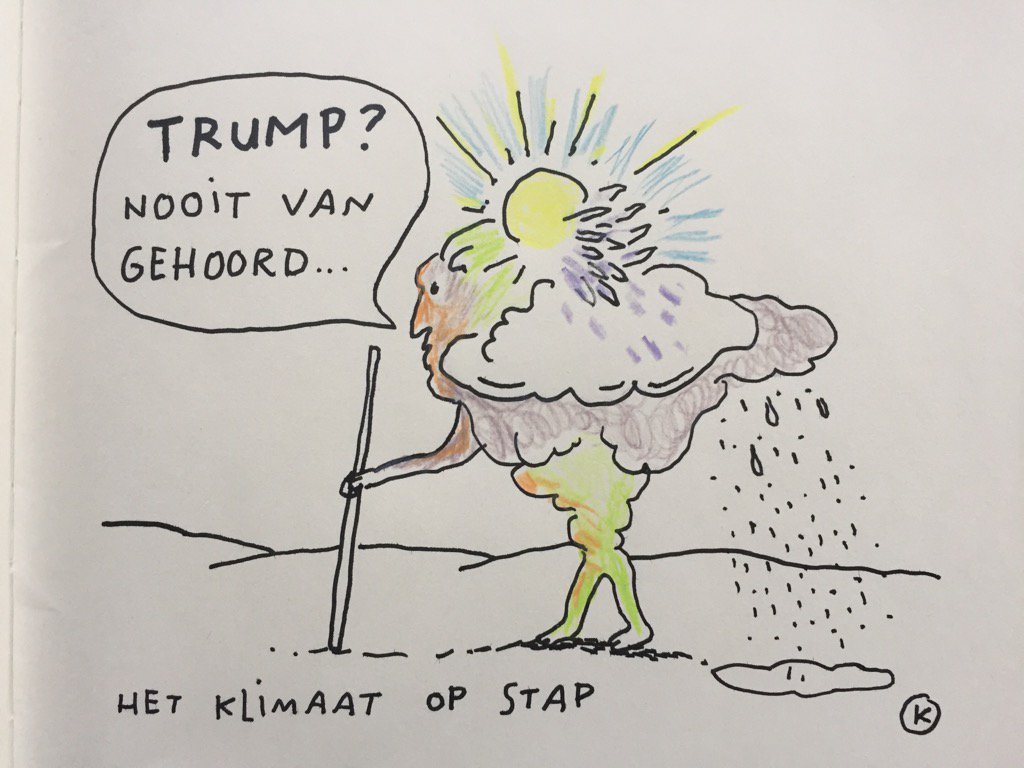 TRUMP?
NOOIT VAN
GEHOORD...
HET KLIMAAT OP STAP
K